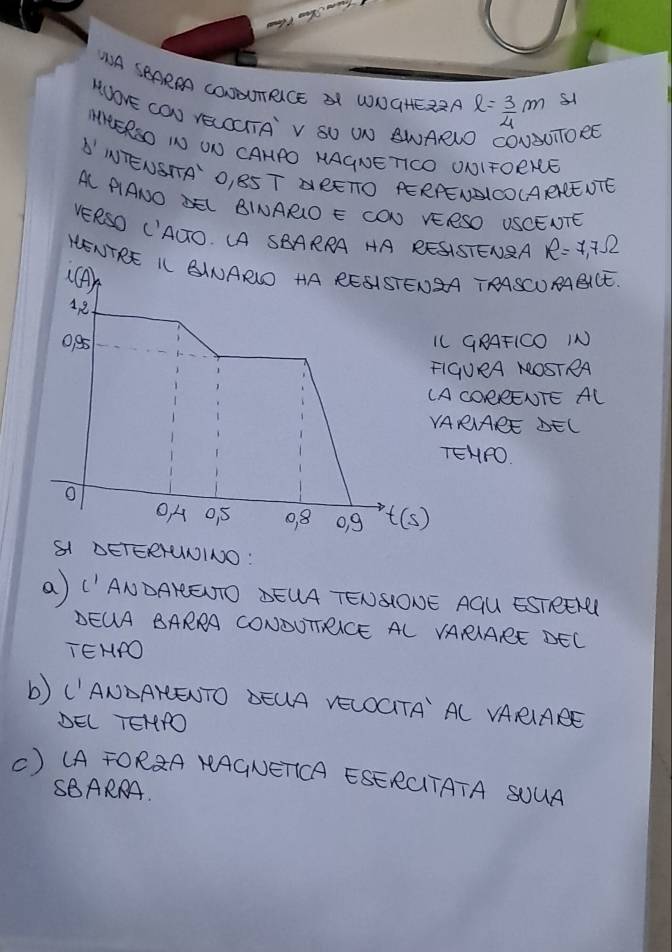 UNA SBARRA CONDUTTRICE DI LUNGHEZZA l = 3/4 m SI
MUOVE CON VELOCITA' V SU UN BINARIO CONDUTTORE
IMMERSO IN UN CAMPO MAGNETICO UNIFORME
D'INTENSITA' 0,85 T DIRETTO PERPENDICOLARMENTE
AL PIANO DEL BINARIO E CON VERSO USCENTE
VERSO L'ALTO. LA SBARRA HA RESISTENZA R = 1,7 Ω
MENTRE IL BINARIO HA RESISTENZA TRASCURABILE.
i(A)
1,2
0,95
0
0,4 0,5 0,8 0,9 t(s)
IL GRAFICO IN
FIGURA MOSTRA
LA CORRENTE AL
VARIARE DEL
TEMPO.
SI DETERMININO:
a) L'ANDAMENTO DELLA TENSIONE AGLI ESTREMI
DELLA BARRA CONDUTTRICE AL VARIARE DEL
TEMPO
b) L'ANDAMENTO DELLA VELOCITA' AL VARIARE
DEL TEMPO
c) LA FORZA MAGNETICA ESERCITATA SULLA
SBARRA.